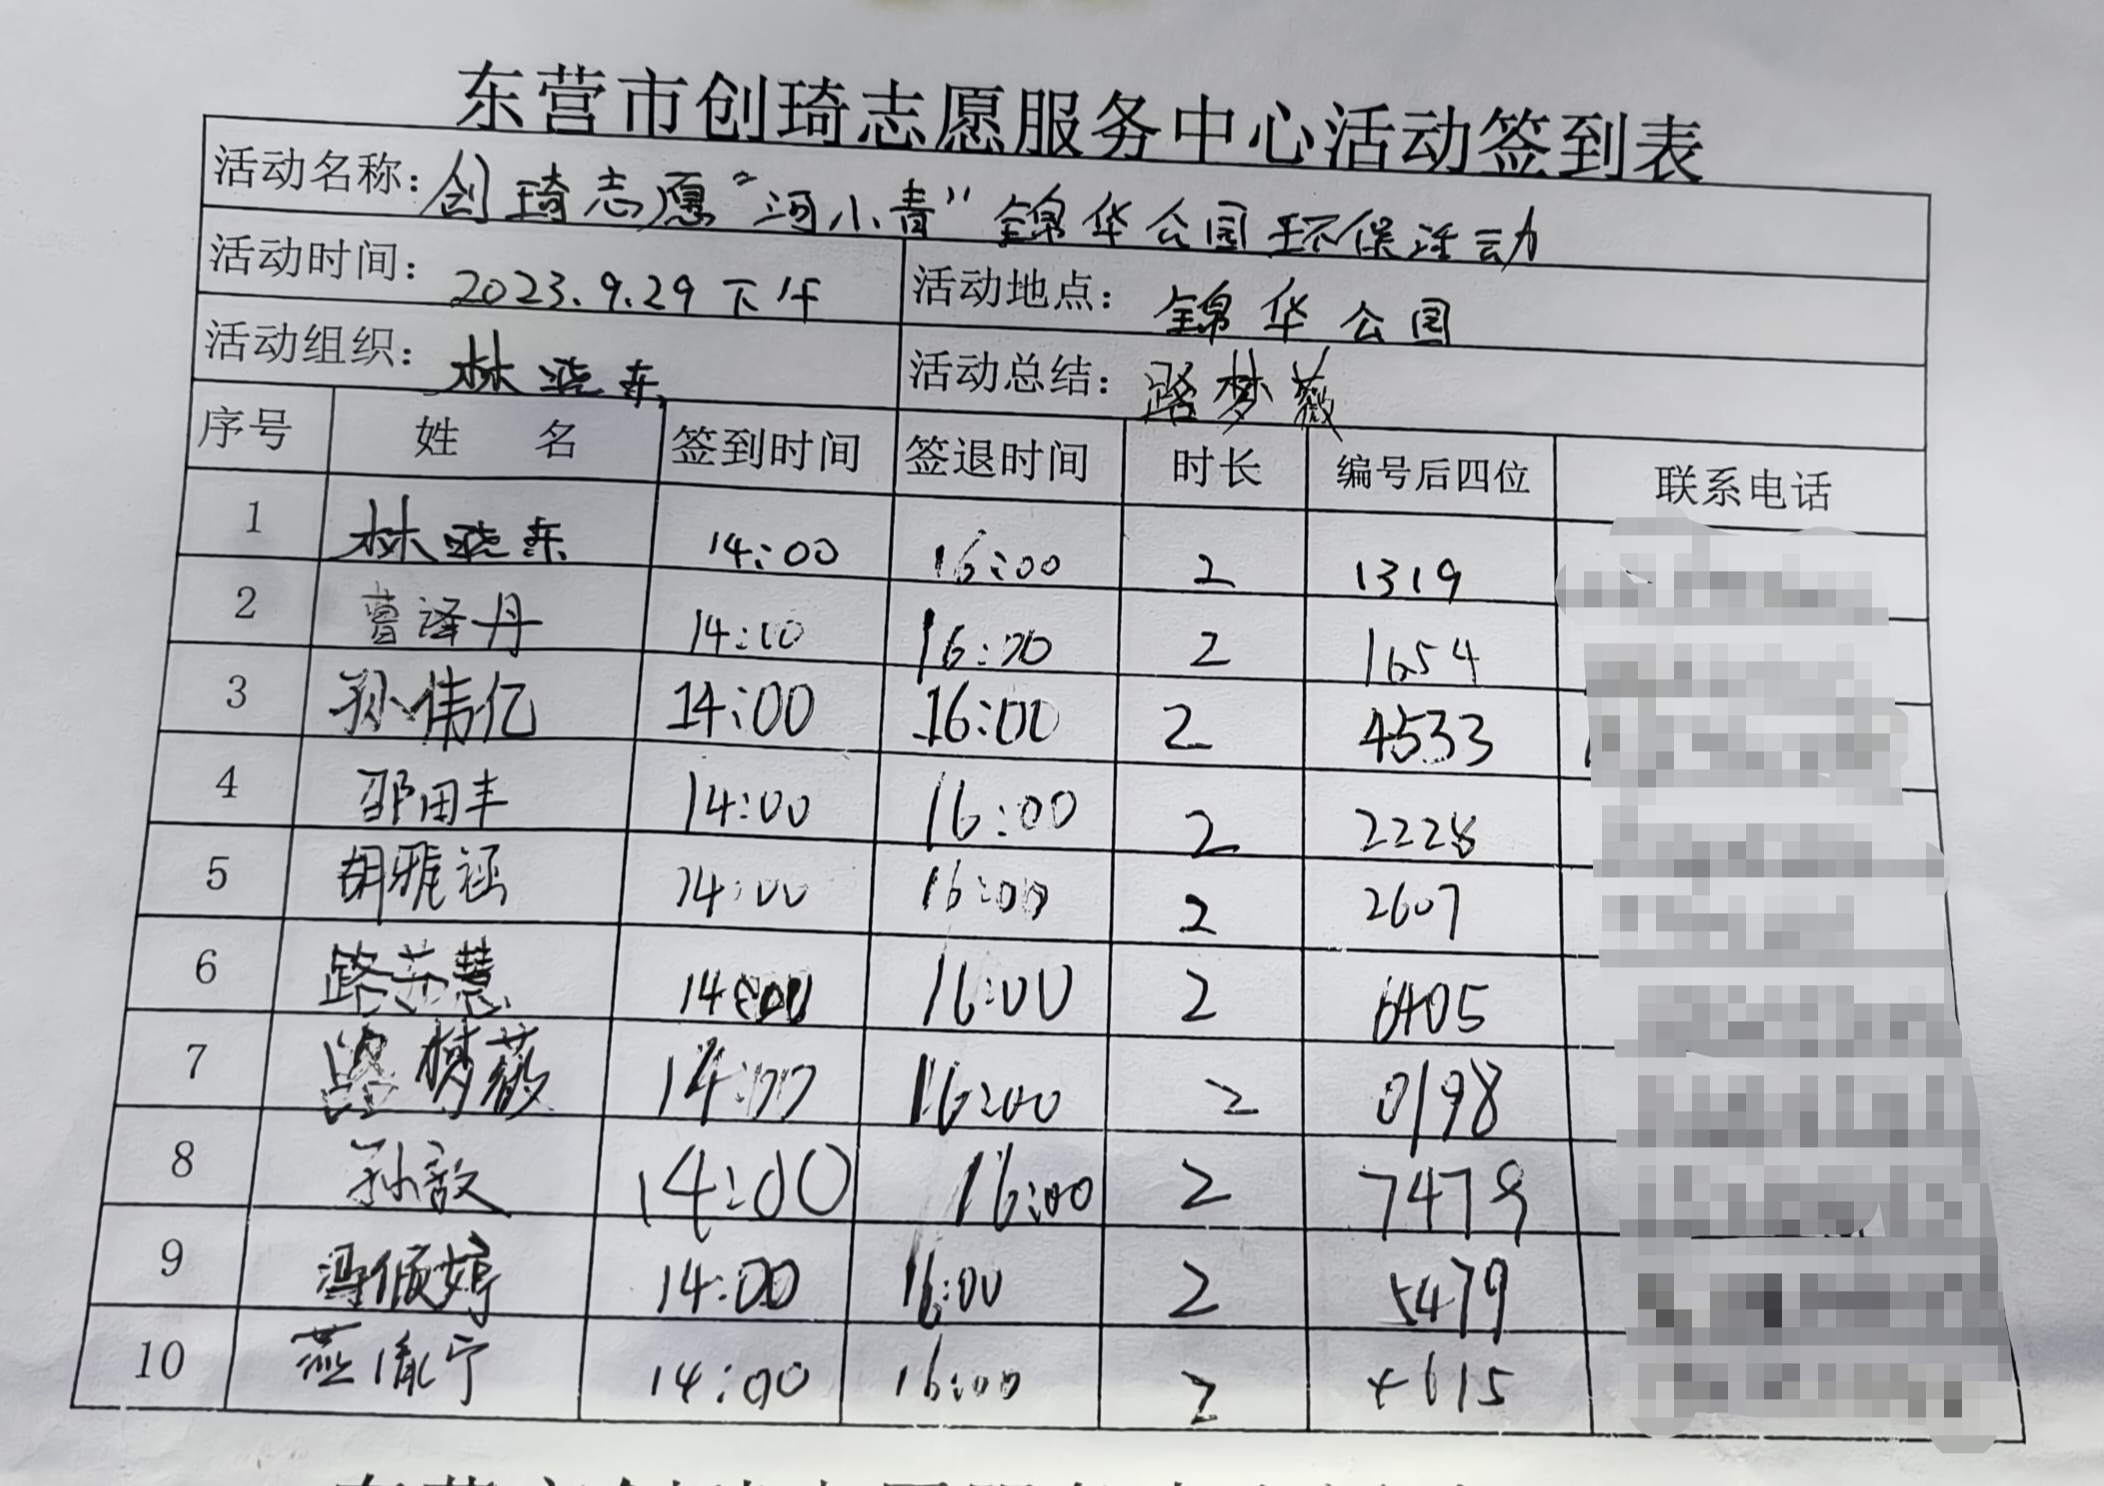 东营市创琦志愿服务中心活动签到表
活动名称：创琦志愿“河小青”锦华公园环保活动
活动时间：2023.9.29下午 活动地点：锦华公园
活动组织：林晓东 活动总结：路梦薇
序号 姓名 签到时间 签退时间 时长 编号后四位 联系电话
1 林晓东 14:00 16:00 2 1319
2 曹泽丹 14:00 16:00 2 1654
3 孙伟亿 14:00 16:00 2 4533
4 邵田丰 14:00 16:00 2 2228
5 胡雅涵 14:00 16:00 2 2607
6 路苏慧 14:00 16:00 2 6405
7 路梦薇 14:00 16:00 2 0198
8 孙敔 14:00 16:00 2 7479
9 冯倾婷 14:00 16:00 2 5479
10 燕胤宁 14:00 16:00 2 4615